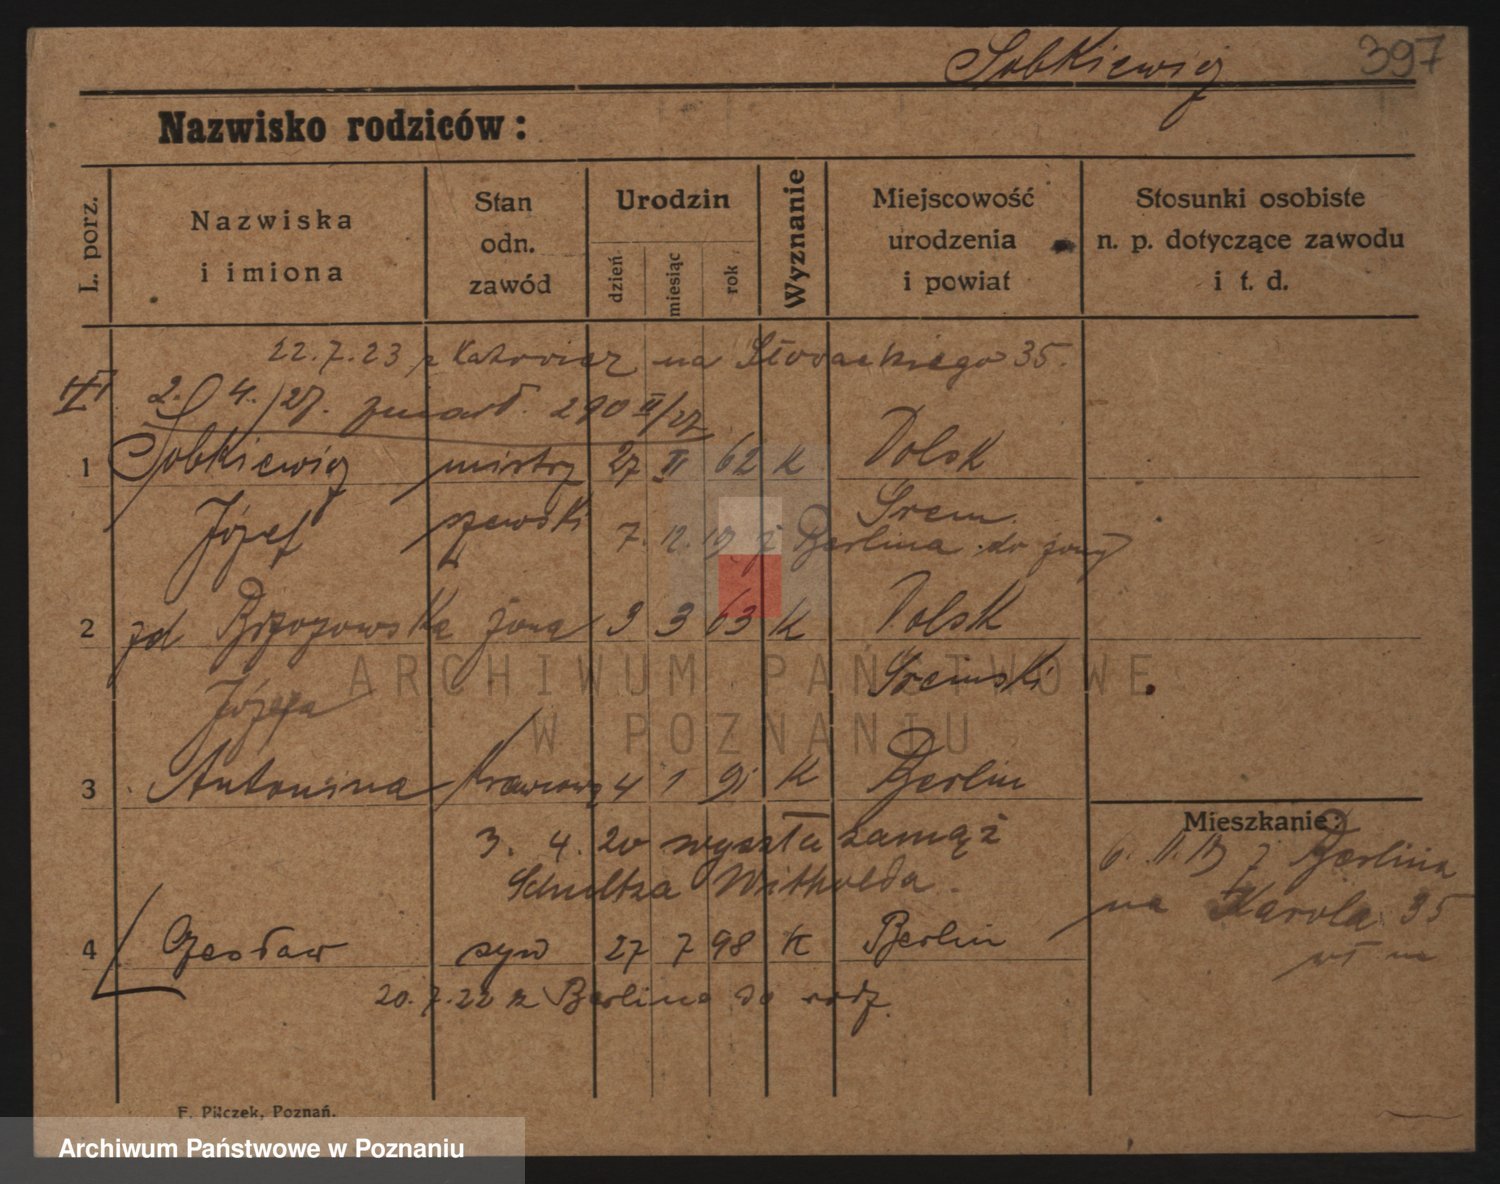 Sobkiewicz 397
Nazwisko rodziców:
L. porz.
Nazwiska
i imiona
Stan
odn.
zawód
Urodzin
dzień
miesiąc
rok
Wyznanie
Miejscowość
urodzenia
i powiat
Stosunki osobiste
n. p. dotyczące zawodu
i t. d.
22.7.23 z Katowicz na Słowackiego 35.
2. 4. 27. zmarł. 290 II/27
1 Sobkiewicz mistrz 27 II 62 K Dolsk
Józef szewski Śrem
7. 12. 19 z Berlina do żony
2 zd Brzozowska żona 9 3 63 K Dolsk
Józefa Śremski
3 Antonina krawcowa 4 1 91 K Berlin
3. 4. 20 wyszła zamąż
Schultza Witholda.
4 Czesław syn 27 7 98 K Berlin
20.7.22 z Berlina do rodz.
Mieszkanie:
6. 11. 19 z Berlina
na Karola 35
F. Pilczek, Poznań.
ARCHIWUM PAŃSTWOWE
W POZNANIU
Archiwum Państwowe w Poznaniu